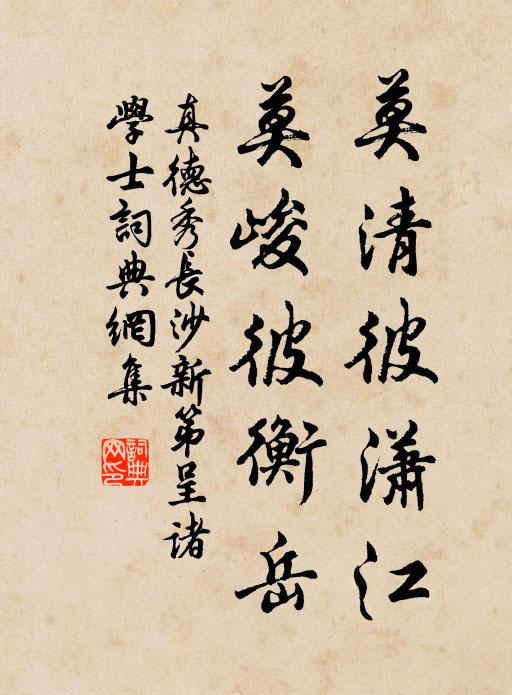 莫清彼瀟江
莫峻彼衡岳
真德秀長沙新第呈諸
學士詞典網集
詞典網印